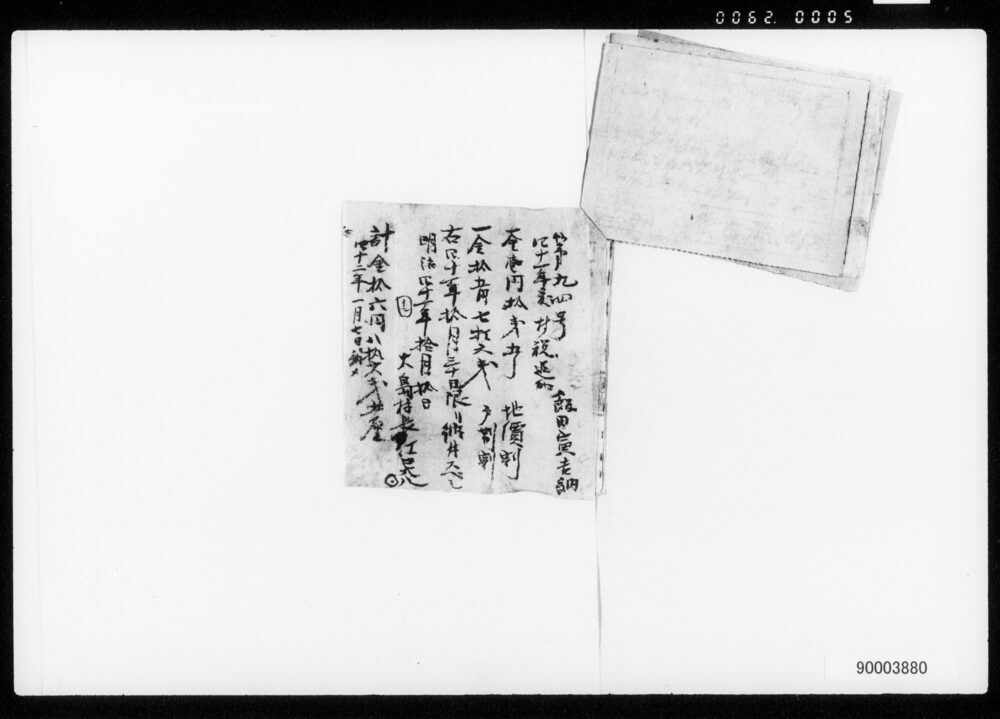 0062. 0005
第九四号
飯田寅吉納
四十一年度村税追加
一金壱円拾弐銭 地價割
一金拾五円七拾六銭 戸別割
右四十一年拾月三十日限リ納付スベシ
明治四十一年拾月拾日
大島村長
計金拾六円八拾八銭
四十二年一月七日納メ
90003880